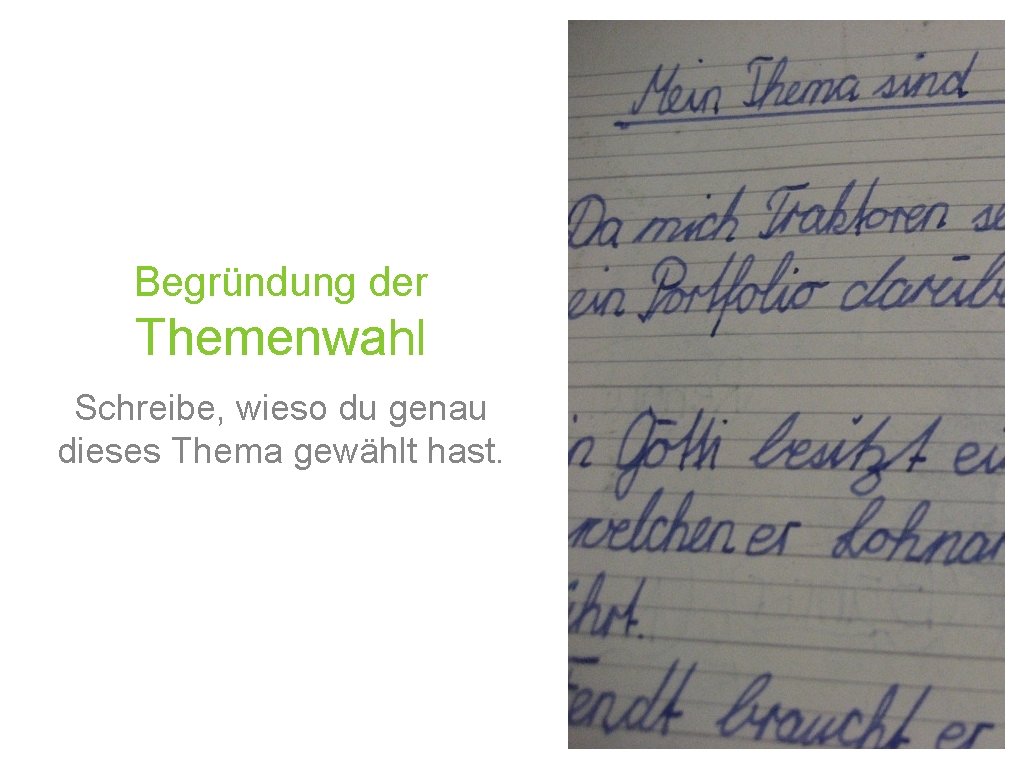 Begründung der
Themenwahl
Schreibe, wieso du genau
dieses Thema gewählt hast.
Mein Thema sind
Da mich Traktoren se
ein Portfolio darüb
n Götti besitzt ei
welchen er Lohnar
ührt.
Fendt braucht er